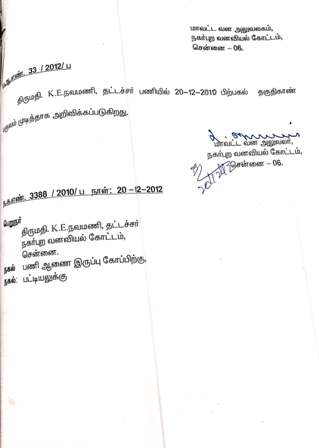 மாவட்ட வன அலுவலகம்,
நகர்புற வனவியல் கோட்டம்,
சென்னை – 06.
33 / 2012/ ப
திருமதி. K.E.நவமணி, தட்டச்சர் பணியில் 20–12–2010 பிற்பகல் தகுதிகாண்
பருவம் முடித்தாக அறிவிக்கப்படுகிறது.
மாவட்ட வன அலுவலர்,
நகர்புற வனவியல் கோட்டம்,
சென்னை – 06.
ந.க.எண். 3388 / 2010/ ப நாள்: 20 –12–2012
பெறுநர்
திருமதி. K.E.நவமணி, தட்டச்சர்
நகர்புற வனவியல் கோட்டம்,
சென்னை.
நகல் பணி ஆணை இருப்பு கோப்பிற்கு.
நகல்: பட்டியலுக்கு